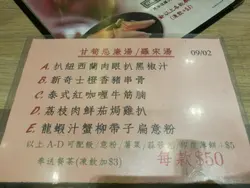 甘筍忌廉湯/羅宋湯 09/02
A. 扒紐西蘭肉眼扒黑椒汁
B. 新奇士橙香豬串骨
C. 泰式紅咖喱牛筋腩
D. 荔枝肉鮮茄焗雞扒
E. 龍蝦汁蟹柳帶子扁意粉
以上A-D可配飯/意粉/薯菜/
奉送餐茶(凍飲加$3) 每款$50